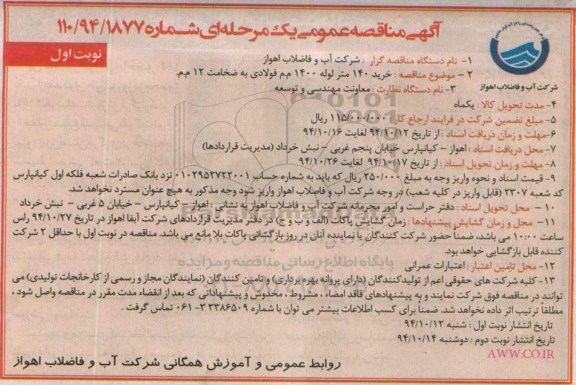 آگهی مناقصه عمومی یک مرحله‌ای شماره ۱۱۰/۹۴/۱۸۷۷
نوبت اول
شرکت آب و فاضلاب اهواز
۱- نام دستگاه مناقصه گزار : شرکت آب و فاضلاب اهواز
۲- موضوع مناقصه : خرید ۱۴۰ متر لوله ۱۴۰۰ م.م فولادی به ضخامت ۱۲ م.م.
۳- نام دستگاه نظارت : معاونت مهندسی و توسعه
۴- مدت تحویل کالا : یکماه
۵- مبلغ تضمین شرکت در فرایند ارجاع کار : ۱۱۵/۰۰۰/۰۰۰ ریال
۶- مهلت و زمان دریافت اسناد : از تاریخ ۹۴/۱۰/۱۲ لغایت ۹۴/۱۰/۱۶
۷- محل دریافت اسناد : اهواز – کیانپارس خیابان پنجم غربی – نبش خرداد (مدیریت قراردادها)
۸- مهلت و زمان تحویل اسناد : از تاریخ ۹۴/۱۰/۱۷ لغایت ۹۴/۱۰/۲۶
۹- قیمت اسناد و نحوه واریز وجه به مبلغ ۲۵۰/۰۰۰ ریال که باید به شماره حساب ۰۱۰۲۹۵۲۷۲۲۰۰۱ نزد بانک صادرات شعبه فلکه اول کیانپارس
کد شعبه ۲۳۰۷ (قابل واریز در کلیه شعب) در وجه شرکت آب و فاضلاب اهواز واریز شود وجه مذکور به هیچ عنوان مسترد نخواهد شد.
۱۰- محل تحویل اسناد : دفتر حراست و امور محرمانه شرکت آب و فاضلاب اهواز به نشانی : اهواز – کیانپارس – خیابان ۵ غربی – نبش خرداد
۱۱- محل و زمان گشایش پیشنهادها : زمان گشایش پاکات (الف و ب و ج) در دفتر مدیریت قراردادهای شرکت آبفا اهواز در تاریخ ۹۴/۱۰/۲۷ راس
ساعت ۱۰:۰۰ می باشد، ضمنا حضور شرکت کنندگان یا نماینده آنان در روز بازگشائی پاکات بلا مانع می باشد. مناقصه در نوبت اول با حداقل ۲ شرکت
کننده قابل بازگشایی خواهد بود.
۱۲- محل تامین اعتبار : اعتبارات عمرانی
۱۳- کلیه شرکت های حقوقی اعم از تولیدکنندگان (دارای پروانه بهره برداری) و تامین کنندگان (نمایندگان مجاز و رسمی از کارخانجات تولیدی) می
توانند در مناقصه فوق شرکت نمایند و به پیشنهادهای فاقد امضاء ، مشروط ، مخدوش و پیشنهاداتی که بعد از انقضاء مدت مقرر در مناقصه واصل شود ،
مطلقاً ترتیب اثر داده نخواهد شد. ضمناً برای کسب اطلاعات بیشتر می توان با شماره ۳۳۳۸۶۵۰۹-۰۶۱ تماس گرفت .
تاریخ انتشار نوبت اول : شنبه ۹۴/۱۰/۱۲
تاریخ انتشار نوبت دوم : دوشنبه ۹۴/۱۰/۱۴
روابط عمومی و آموزش همگانی شرکت آب و فاضلاب اهواز
AWW.CO.IR